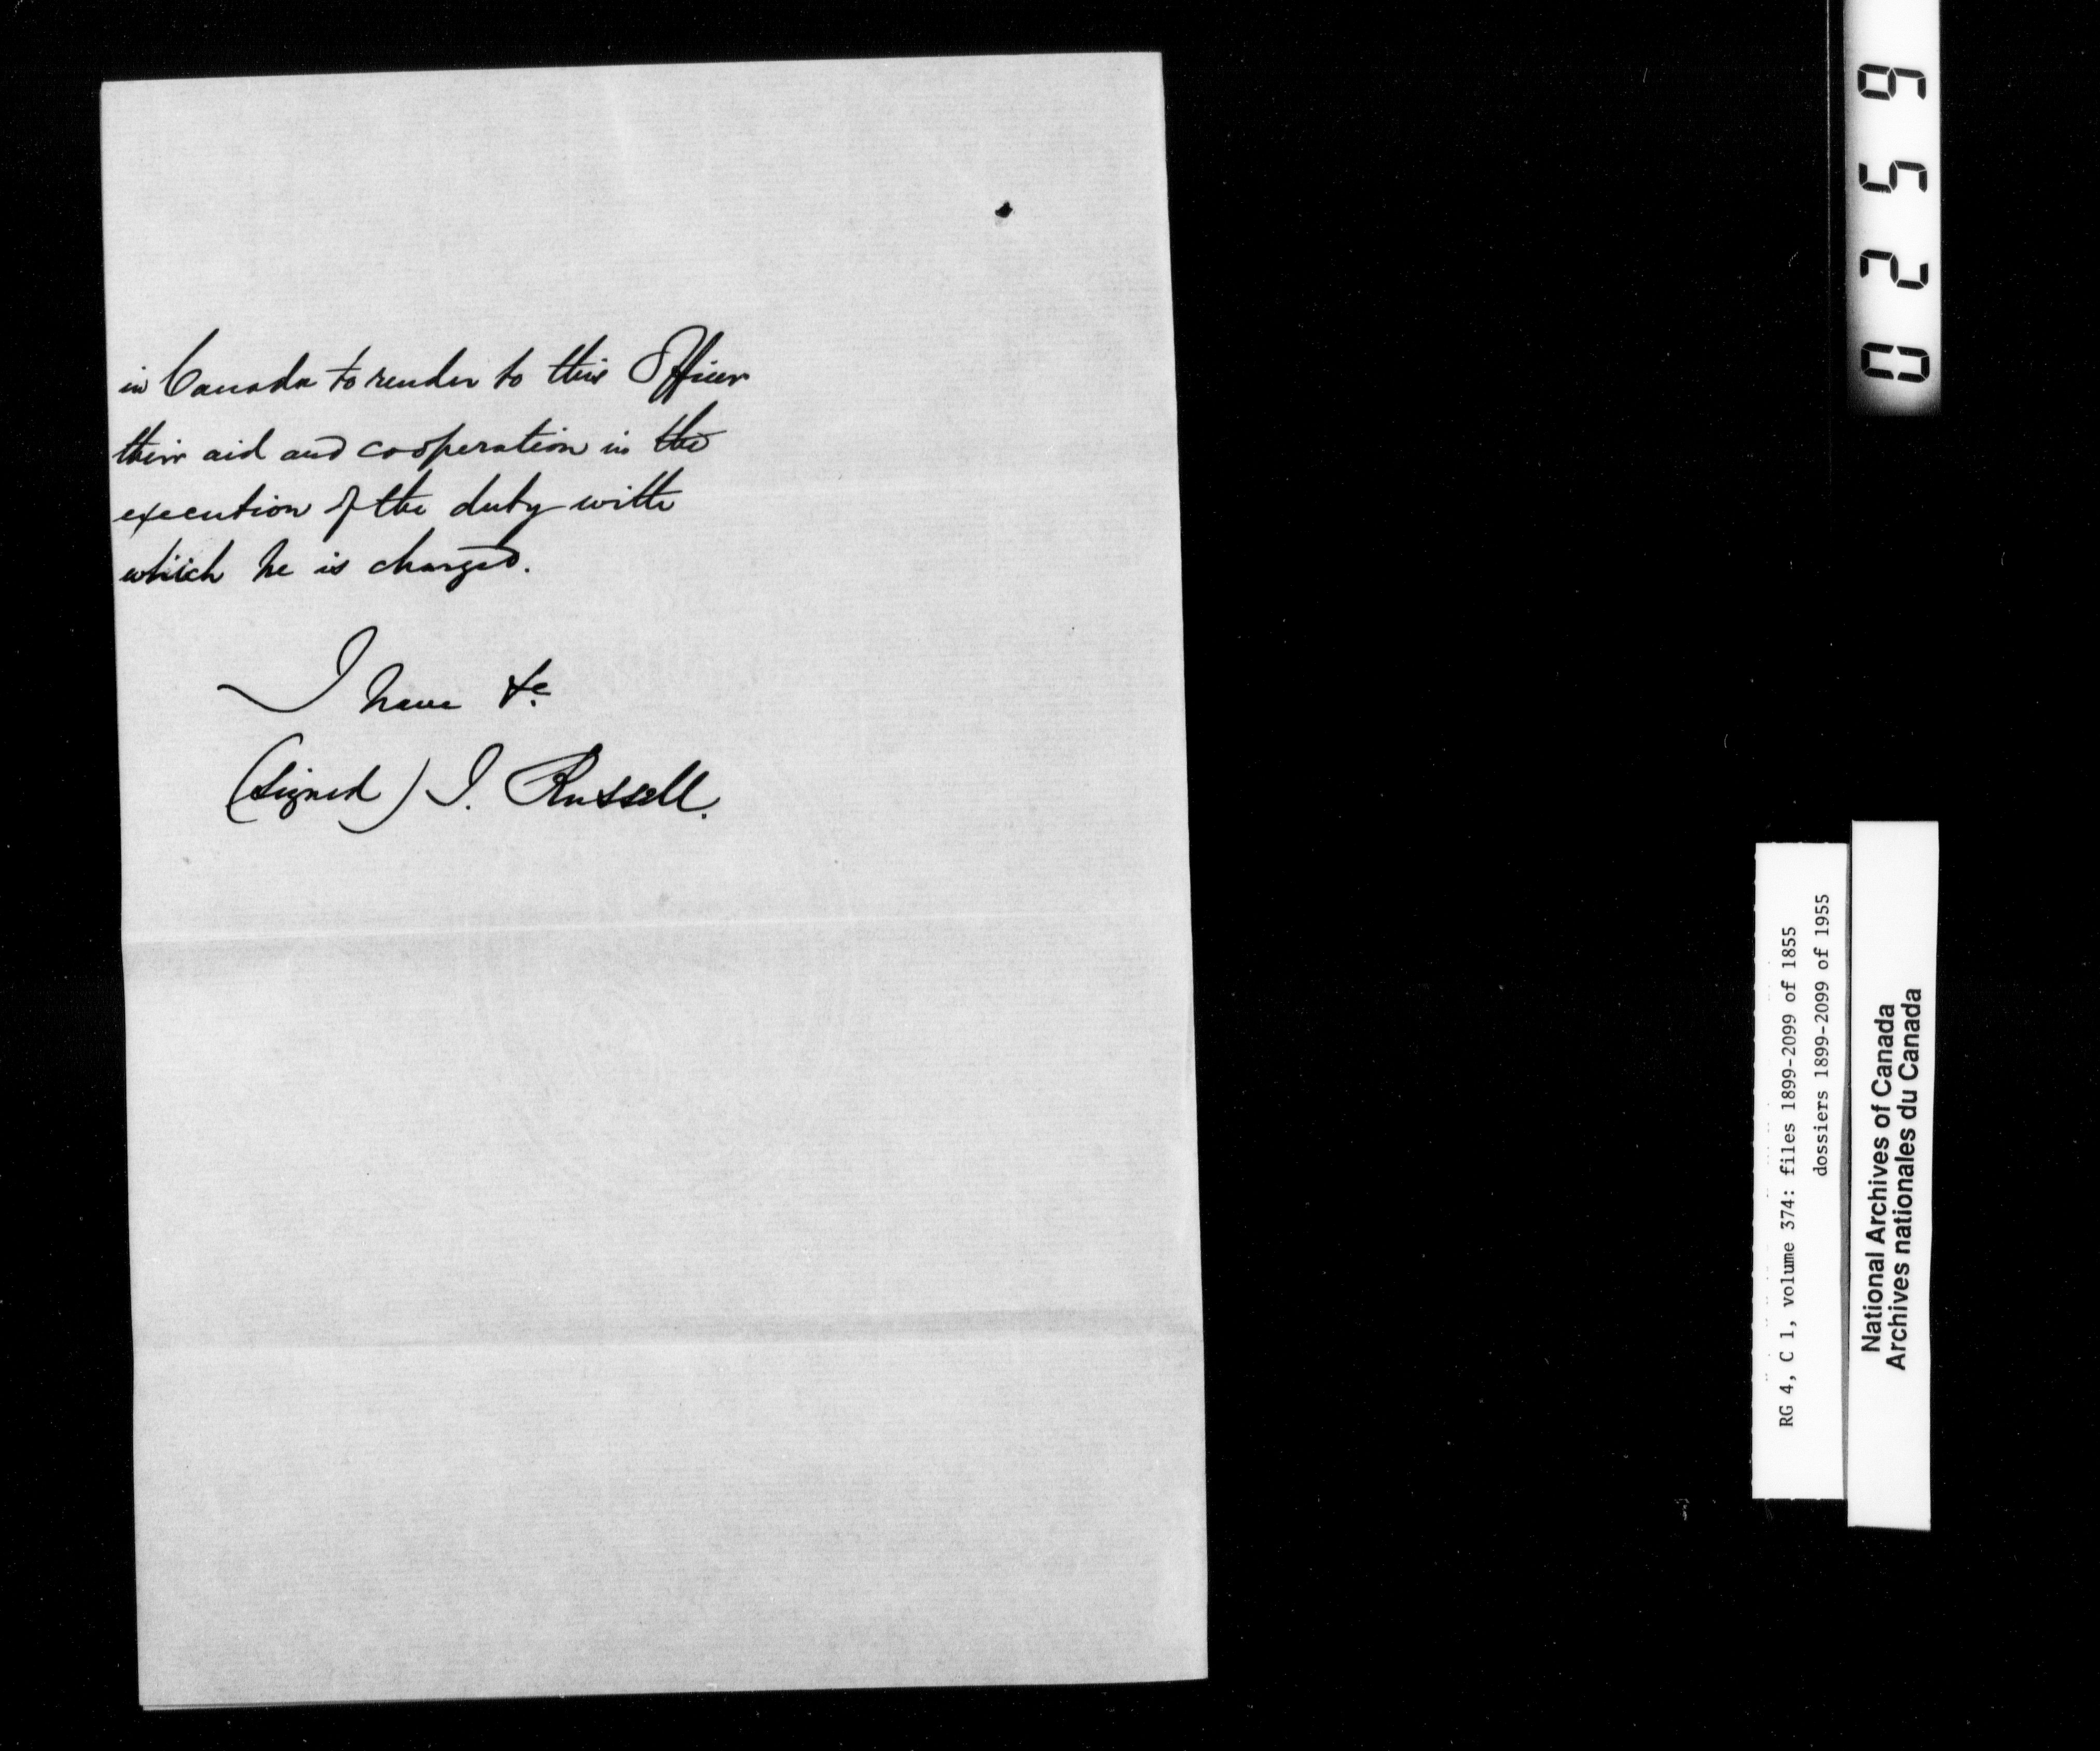 in Canada to render to this Officer
their aid and cooperation in the
execution of the duty with
which he is charged.
I have &c.
(Signed) J. Russell.
0259
RG 4, C 1, volume 374: files 1899-2099 of 1855
dossiers 1899-2099 of 1955
National Archives of Canada
Archives nationales du Canada